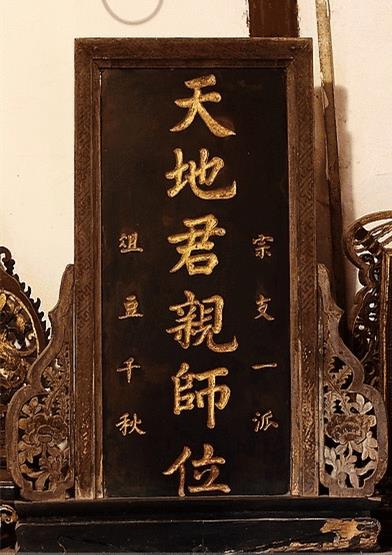 宗支一派
天地君親師位
俎豆千秋